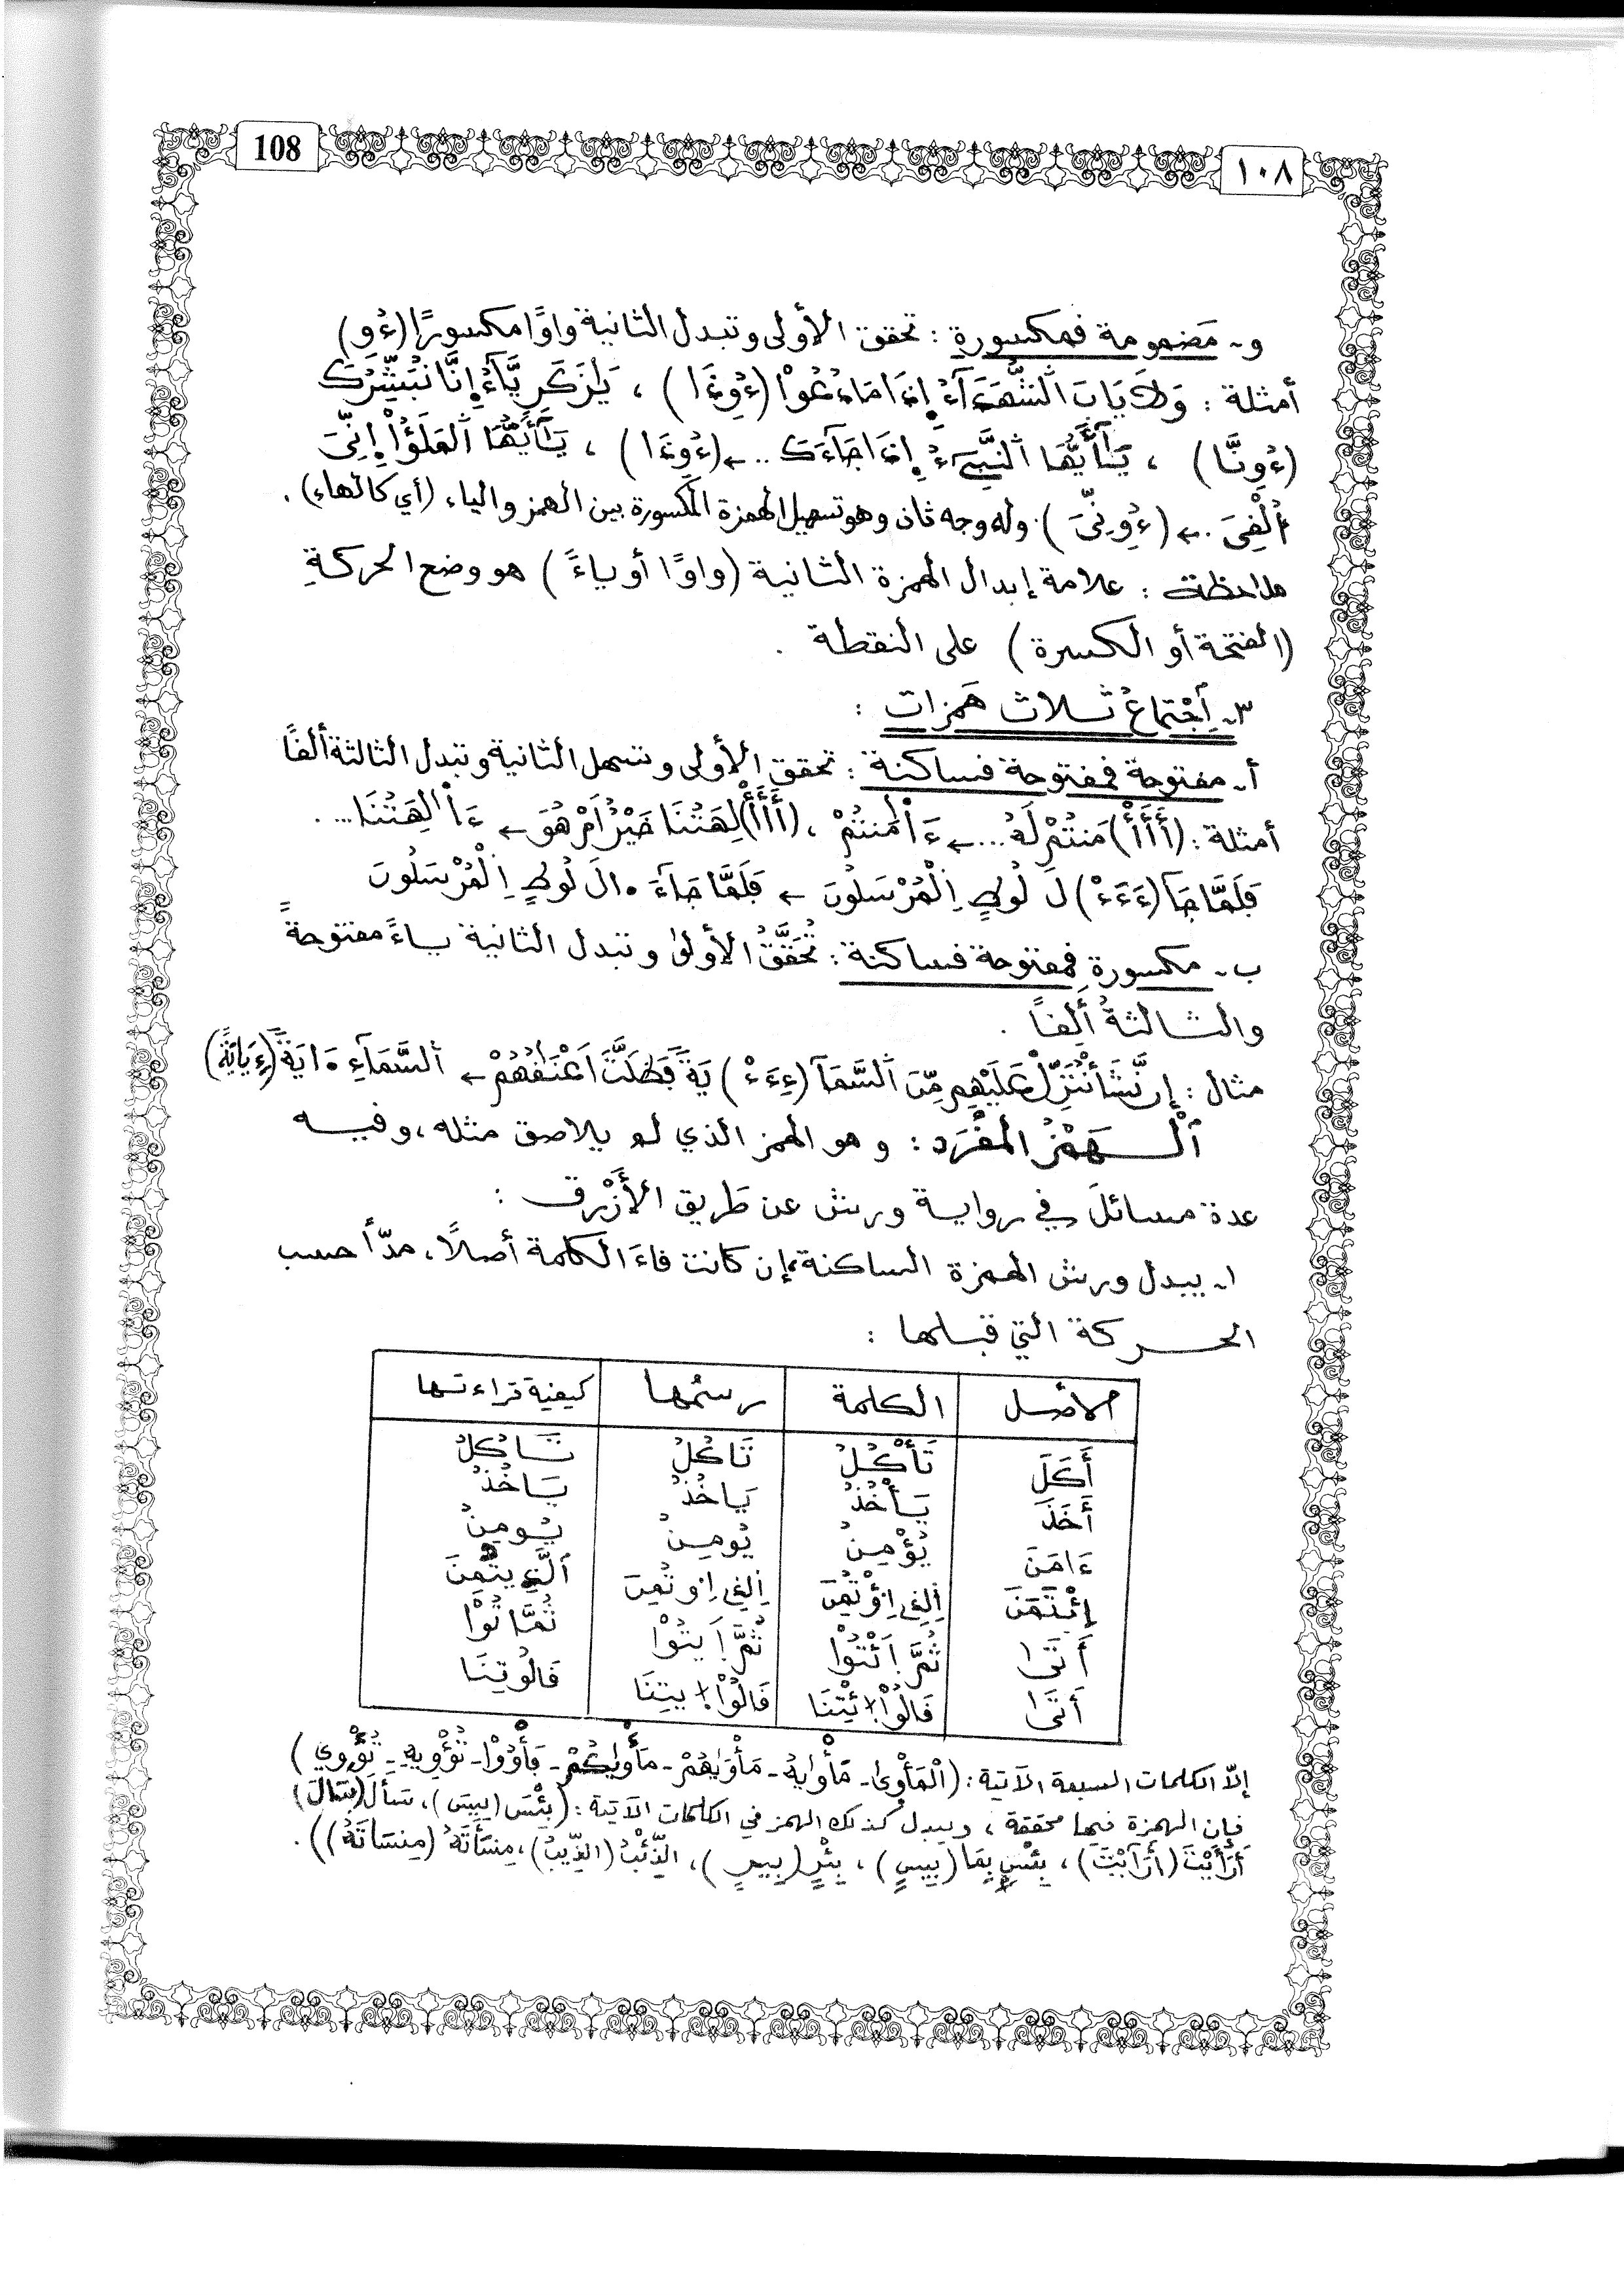 108
١٠٨
و- مَضمومة فمكسورةٍ : تحقق الأولى وتبدل الثانية واوًا مكسورًا (ءُو)
أمثلة : وَلَا يَابَ اَلشُّهَدَآءُ اِ۪ذَا مَا دُعُواْ (ءُوِذَا) ، يَٰزَكَرِيَّآءُ اِ۪نَّا نُبَشِّرُكَ
(ءُوِنَّا) ، يَٰٓأَيُّهَا اَلنَّبِيٓءُ اِ۪ذَا جَآءَكَ .. ← (ءُوِذَا) ، يَٰٓأَيُّهَا اَلْمَلَؤُاْ اِ۪نِّيَ
أُلْقِيَ . ← (ءُوِنِّيَ) . وله وجه ثان وهو تسهيل الهمزة المكسورة بين الهمز والياء (أي كالهاء) .
ملاحظة : علامة إبدال الهمزة الثانية (واوًا أو ياءً) هو وضع الحركةِ
(الفتحة أو الكسرة) على النقطة .
٣- اِجْتماعُ ثلاث هَمزات :
أ- مفتوحة فمفتوحة فساكنة : تحقق الأولى وتسهل الثانية وتبدل الثالثة ألفًا
أمثلة : (أَأَأْ) مَنتُمْ لَهُ ... ← ءَاْ۬مَنتُمْ ، (أَأَأْ) لِهَتُنَا خَيْرٌ اَمْ هُوَ ← ءَاْ۬لِهَتُنَا ... .
فَلَمَّا جَآ (ءَءَءْ) لَ لُوطٍ اِ۬لْمُرْسَلُونَ ← فَلَمَّا جَآءَ ا۟لَ لُوطٍ اِ۬لْمُرْسَلُونَ
ب- مكسورةٍ فمفتوحة فساكنة : تُحَقَّقُ الأولى وتبدل الثانية ياءً مفتوحةً
والثالثةُ ألِفاً .
مثال : إِن نَّشَأْ نُنَزِّلْ عَلَيْهِم مِّنَ اَلسَّمَآ (ءِءَءْ) يَةً فَظَلَّتَ اَعْنَٰقُهُمْ ← اَلسَّمَآءِ ا۟يَةً (ءِيَايَةً)
اَلْهَمْزُ المُفْرَد : وهو الهمز الذي لم يلاصق مثله ، وفيه
عدة مسائلَ في رواية ورش عن طَريق الأَزْرق :
١- يبدل ورش الهمزة الساكنة ، إن كانت فاءَ الكلمة أصلاً ، مدّاً حسب
الحركة التي قبلها :
الأصل | الكلمة | رسمُها | كيفية قراءتها
أَكَلَ | تَأْكُلُ | تَاكُلُ | تَاكُلُ
أَخَذَ | يَأْخُذُ | يَاخُذُ | يَاخُذُ
ءَامَنَ | يُؤْمِنُ | يُومِنُ | يُومِنُ
اِئْتَمَنَ | اِلذِي اِ۟ؤْتُمِنَ | اِلذِي اِ۟وتُمِنَ | اَلَّذِيتُمِنَ
أَتَىٰ | ثُمَّ اَ۪ئْتُواْ | ثُمَّ اَ۪يتُواْ | ثُمَّاتُواْ
أَتَىٰ | قَالُواْ اُ۪ئْتِنَا | قَالُواْ اُ۪يتِنَا | قَالُوتِنَا
إلّا الكلمات السبعة الآتية : (الْمَأْوىٰ - مَأْوَاهُ - مَأْوَىٰهُمْ - مَأْوَىٰكُمْ - فَأْوُواْ - تُؤْوِيهِ - تُؤْوِي)
فإن الهمزة فيها محققة ، ويبدل كذلك الهمز في الكلمات الآتية : (بِئْسَ (بِيسَ) ، سَأَلَ (سَالَ)
أَرَأَيْتَ (أَرَآيْتَ) ، بِئْسٍ بِمَا (بِيسٍ) ، بِئْرٍ (بِيرٍ) ، الذِّئْبُ (الذِّيبُ) ، مِنسَأَتَهُ (مِنسَاتَهُ)) .